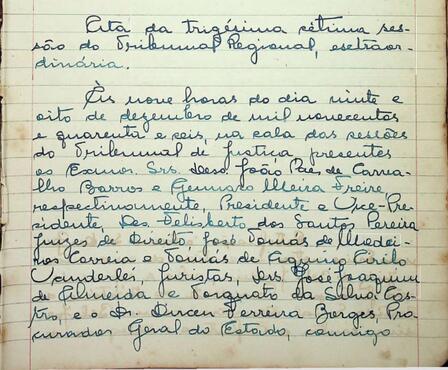 Acta da trigésima sétima ses-
são do Tribunal Regional, extraor-
dinária.
Às nove horas do dia vinte e
oito de dezembro de mil novecentos
e quarenta e seis, na sala das sessões
do Tribunal de Justiça, presentes
os Exmos. Srs. Des. João Paes de Carva-
lho Barros e Gennaro Meira Freire
respectivamente, Presidente e Vice-Pre-
sidente, Des. Felisberto dos Santos Pereira
Juizes de Direito José Tomás de Medei-
ros Correia e Tomás de Aquino Cirilo
Wanderlei, Juristas, Drs. José Joaquim
de Almeida e Torquato da Silva Cas-
tro, e o Dr. Dirceu Ferreira Borges, Pro-
curador Geral do Estado, comigo